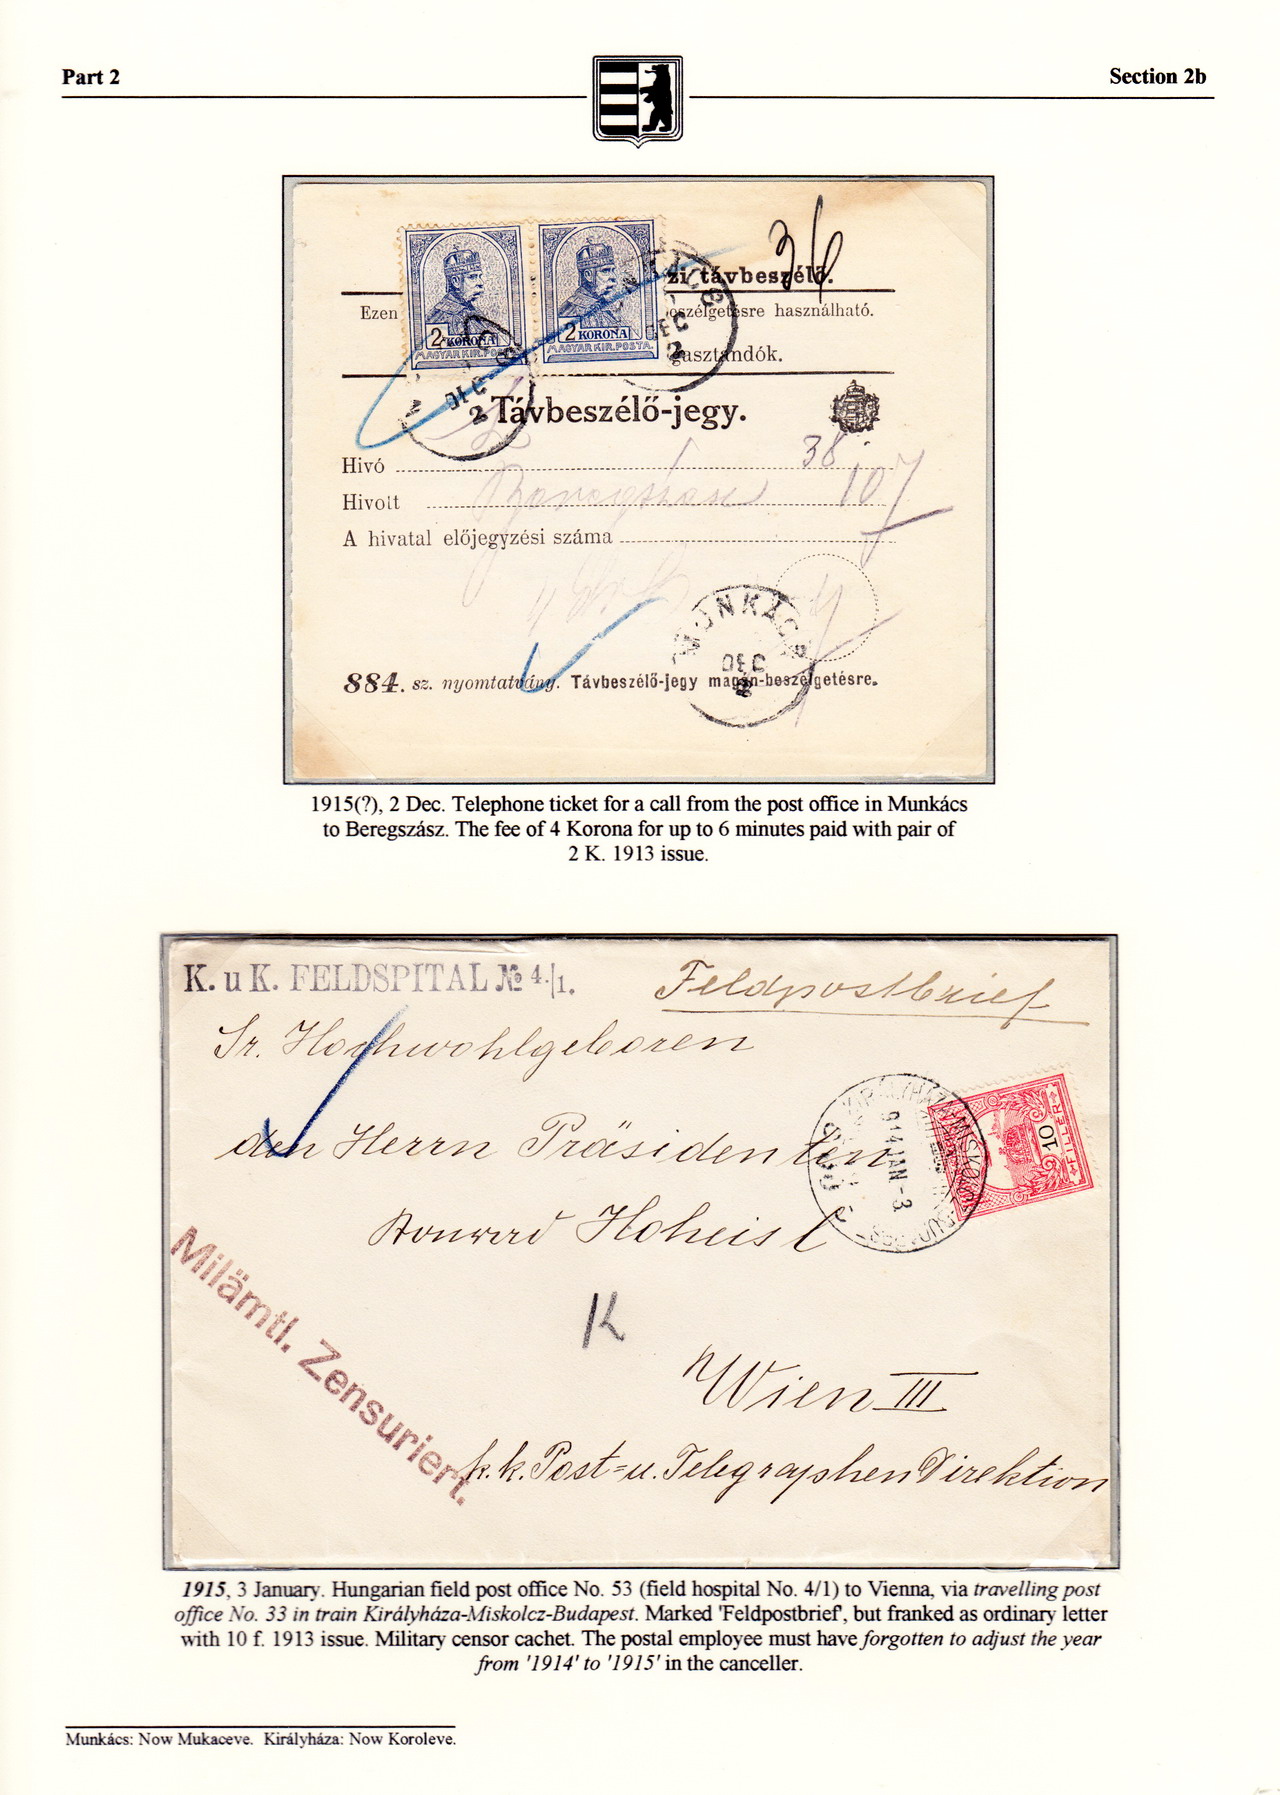 Part 2
Section 2b
36
zi távbeszélő.
Ezen
oszélgetésre használható.
gasztandók.
2 KORONA
MAGYAR KIR. POSTA.
2 KORONA
MAGYAR KIR. POSTA.
DEC
2
DEC
2
Távbeszélő-jegy.
Hivó 38
Hivott 107
A hivatal előjegyzési száma
MUNKÁCS
DEC
2
884. sz. nyomtatvány. Távbeszélő-jegy magán-beszélgetésre.
1915(?), 2 Dec. Telephone ticket for a call from the post office in Munkács
to Beregszász. The fee of 4 Korona for up to 6 minutes paid with pair of
2 K. 1913 issue.
K. u K. FELDSPITAL № 4./1.
Feldpostbrief
Sr. Hochwohlgeboren
den Herrn Präsidenten
Hoheisl
KIRÁLYHÁZA-MISKOLCZ-BUDAPEST
914 JAN -3
10
FILLÉR
K
Wien III
k. k. Post- u. Telegraphen Direktion
Milämtl. Zensuriert.
1915, 3 January. Hungarian field post office No. 53 (field hospital No. 4/1) to Vienna, via travelling post
office No. 33 in train Királyháza-Miskolcz-Budapest. Marked 'Feldpostbrief', but franked as ordinary letter
with 10 f. 1913 issue. Military censor cachet. The postal employee must have forgotten to adjust the year
from '1914' to '1915' in the canceller.
Munkács: Now Mukaceve. Királyháza: Now Koroleve.